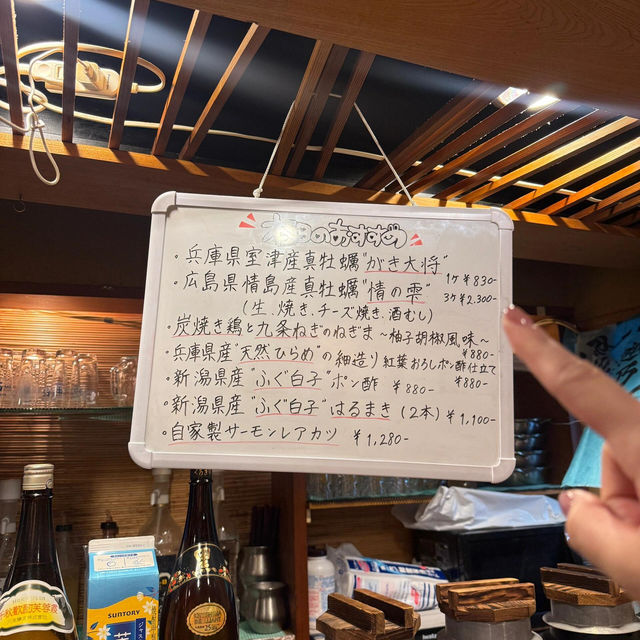 本日のおすすめ
・兵庫県室津産真牡蠣"がき大将"
・広島県情島産真牡蠣"情の雫"
1ケ ¥830-
3ケ ¥2.300-
(生.焼き.チーズ焼き.酒むし)
・炭焼き鶏と九条ねぎのねぎま~柚子胡椒風味~
¥880-
・兵庫県産"天然ひらめ"の細造り 紅葉おろしポン酢仕立て
¥880-
・新潟県産"ふぐ白子"ポン酢 ¥880-
・新潟県産"ふぐ白子"はるまき(2本)¥1,100-
・自家製サーモンレアカツ ¥1,280-
SUNTORY